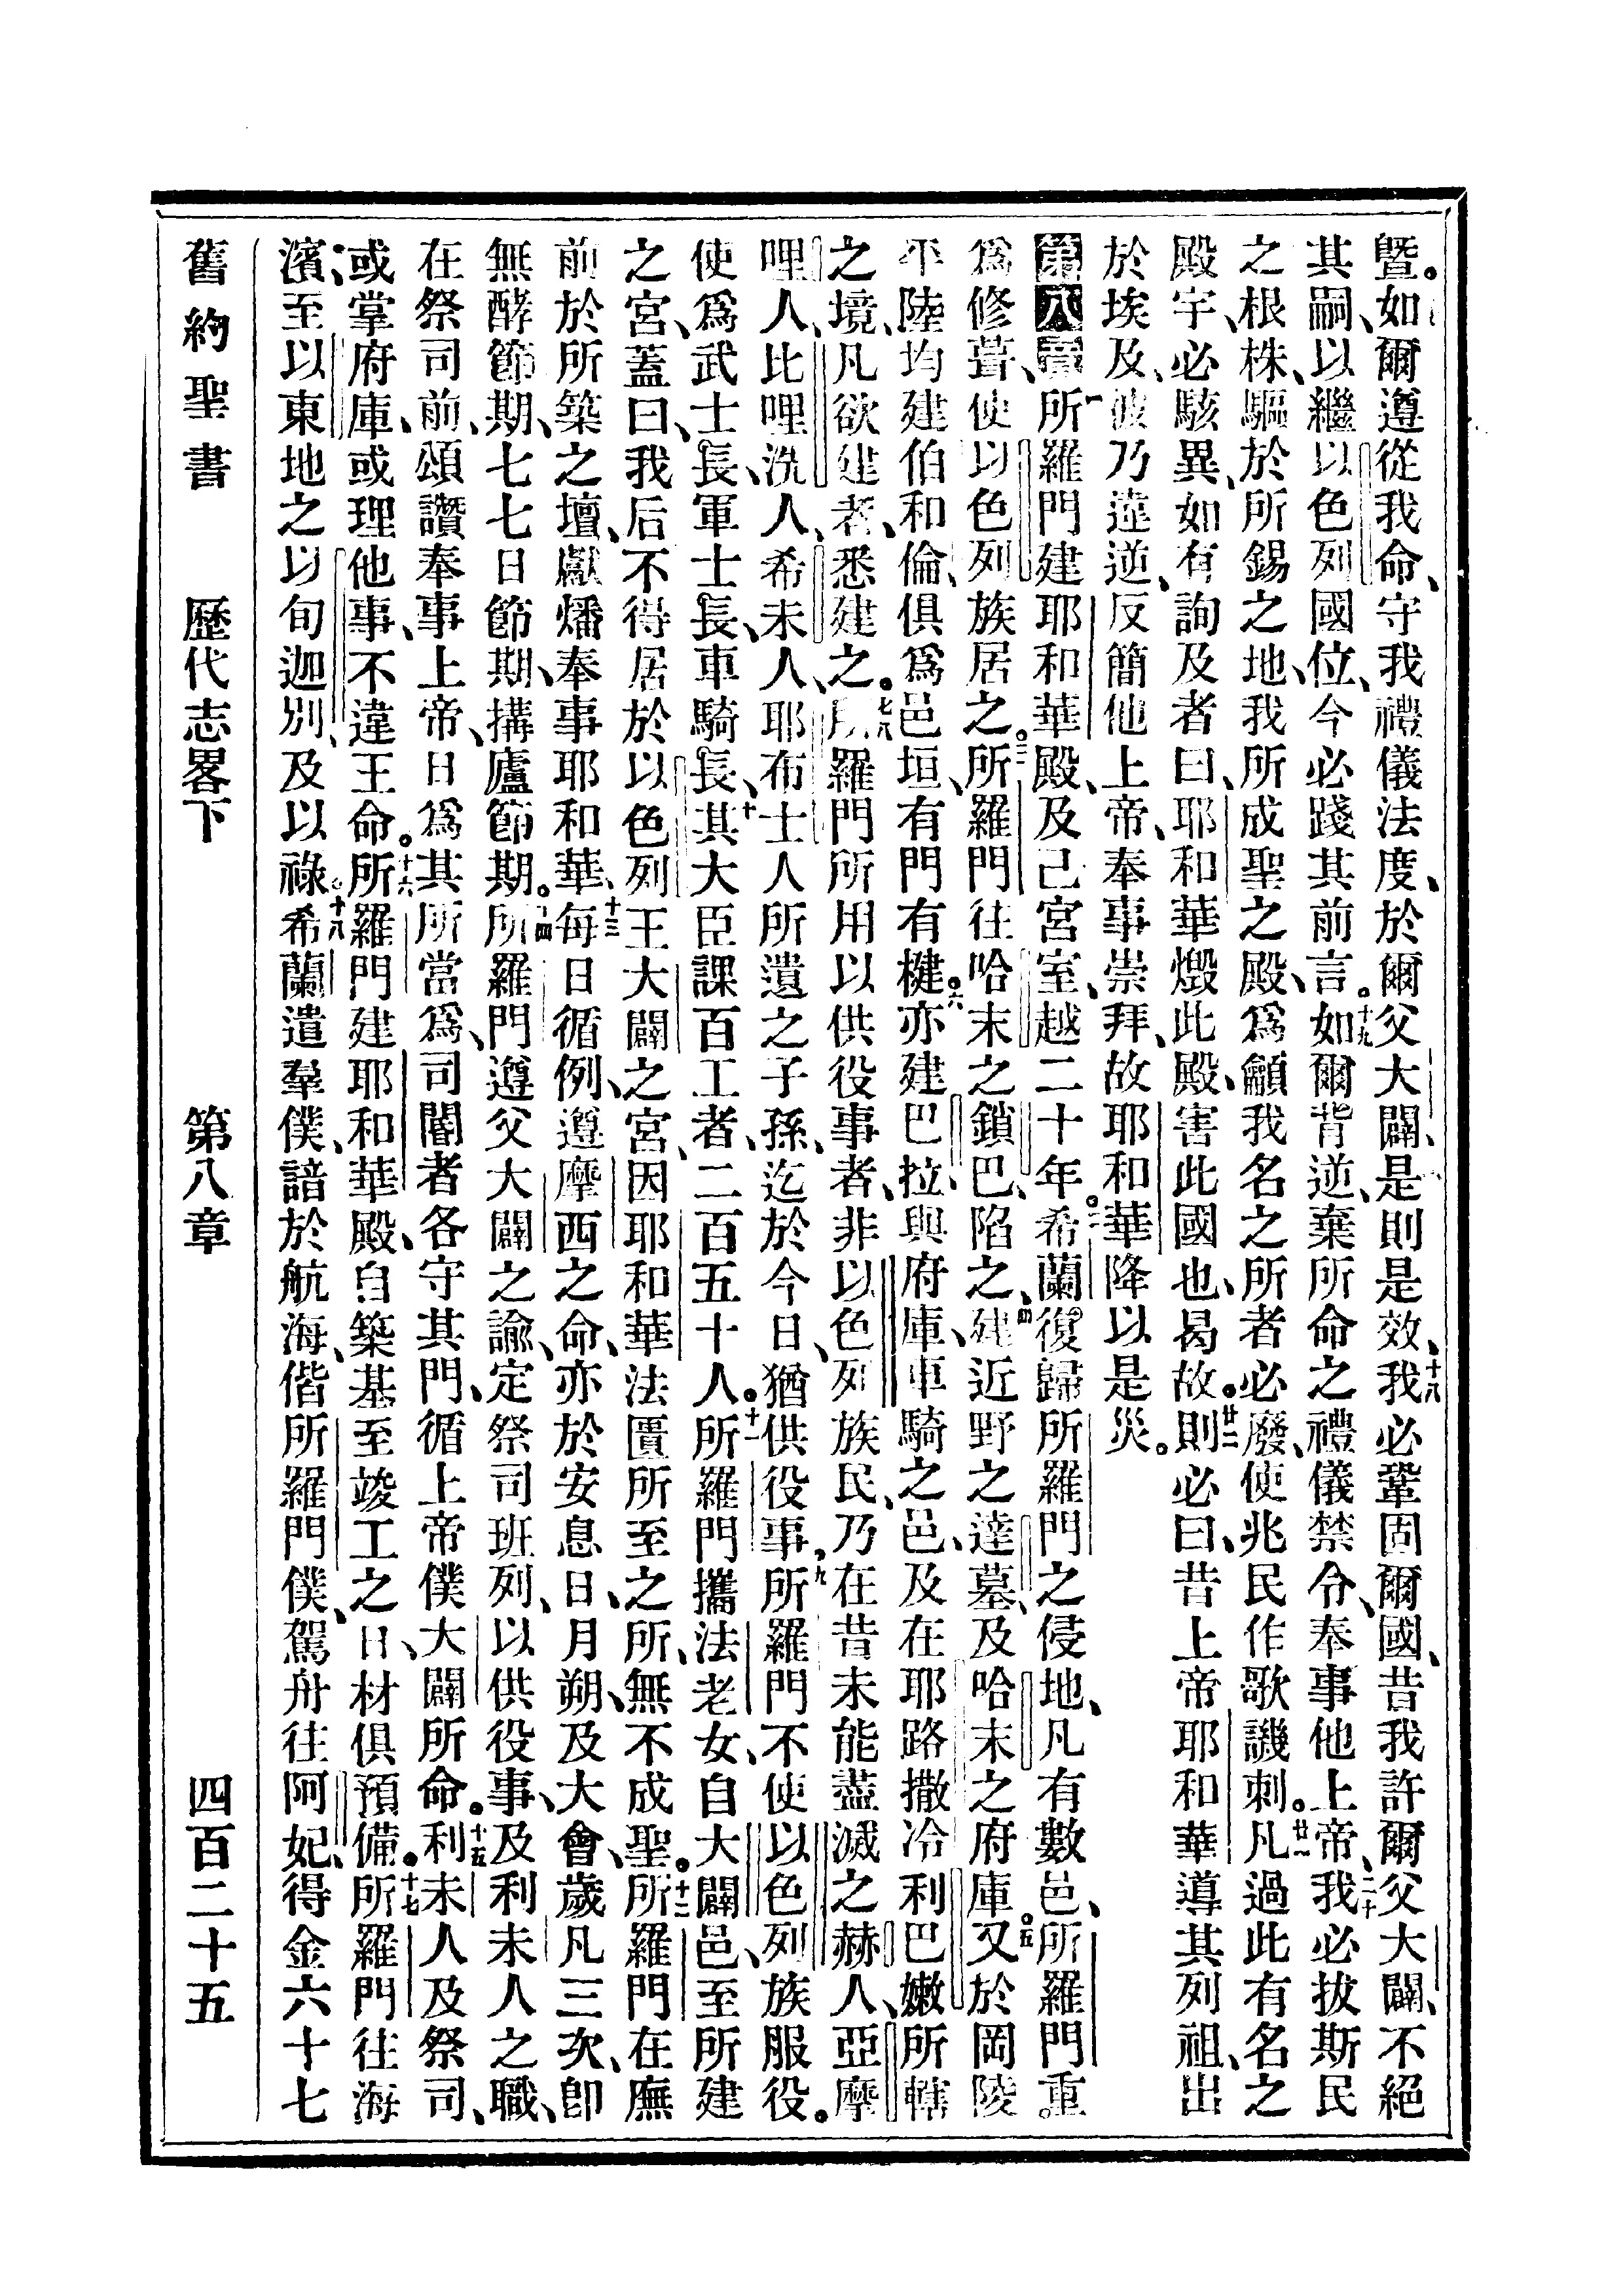 曁。如爾遵從我命、守我禮儀法度、於爾父大闢、是則是效、十八我必鞏固爾國、昔我許爾父大闢、不絕
其嗣、以繼以色列國位、今必踐其前言。十九如爾背逆、棄所命之禮儀禁令、奉事他上帝、二十我必拔斯民
之根株、驅於所錫之地、我所成聖之殿、爲籲我名之所者必廢、使兆民作歌譏刺。廿一凡過此有名之
殿宇、必駭異、如有詢及者曰、耶和華燬此殿、害此國也、曷故。廿二則必曰、昔上帝耶和華導其列祖、出
於埃及、彼乃違逆、反簡他上帝、奉事崇拜、故耶和華降以是災。
第八章 一所羅門建耶和華殿、及己宮室、越二十年。二希蘭復歸所羅門之侵地、凡有數邑、所羅門重
爲修葺、使以色列族居之。三所羅門往哈末之鎖巴、陷之、四建近野之達墓、及哈末之府庫。五又於岡陵
平陸均建伯和倫、俱爲邑垣、有門有楗。六亦建巴拉與府庫、車騎之邑、及在耶路撒冷利巴嫩所轄
之境、凡欲建者、悉建之。七八所羅門所用以供役事者、非以色列族民、乃在昔未能盡滅之赫人、亞摩
哩人、比哩洗人、希未人、耶布士人所遺之子孫、迄於今日、猶供役事、九所羅門不使以色列族服役。
使爲武士長、軍士長、車騎長、十其大臣課百工者、二百五十人。十一所羅門攜法老女、自大闢邑、至所建
之宮、蓋曰、我后不得居於以色列王大闢之宮、因耶和華法匱所至之所、無不成聖。十二所羅門在廡
前於所築之壇、獻燔奉事耶和華、十三每日循例、遵摩西之命、亦於安息日、月朔、及大會、歲凡三次、卽
無酵節期、七七日節期、搆廬節期。十四所羅門遵父大闢之諭、定祭司班列、以供役事、及利未人之職、
在祭司前、頌讚奉事上帝、日爲其所當爲、司閽者各守其門、循上帝僕大闢所命。十五利未人及祭司、
或掌府庫、或理他事、不違王命。十六所羅門建耶和華殿、自築基至竣工之日、材俱預備。十七所羅門往海
濱、至以東地之以旬迦別、及以祿。十八希蘭遣羣僕、諳於航海、偕所羅門僕、駕舟往阿妃、得金六十七
舊約聖書 歷代志畧下 第八章 四百二十五